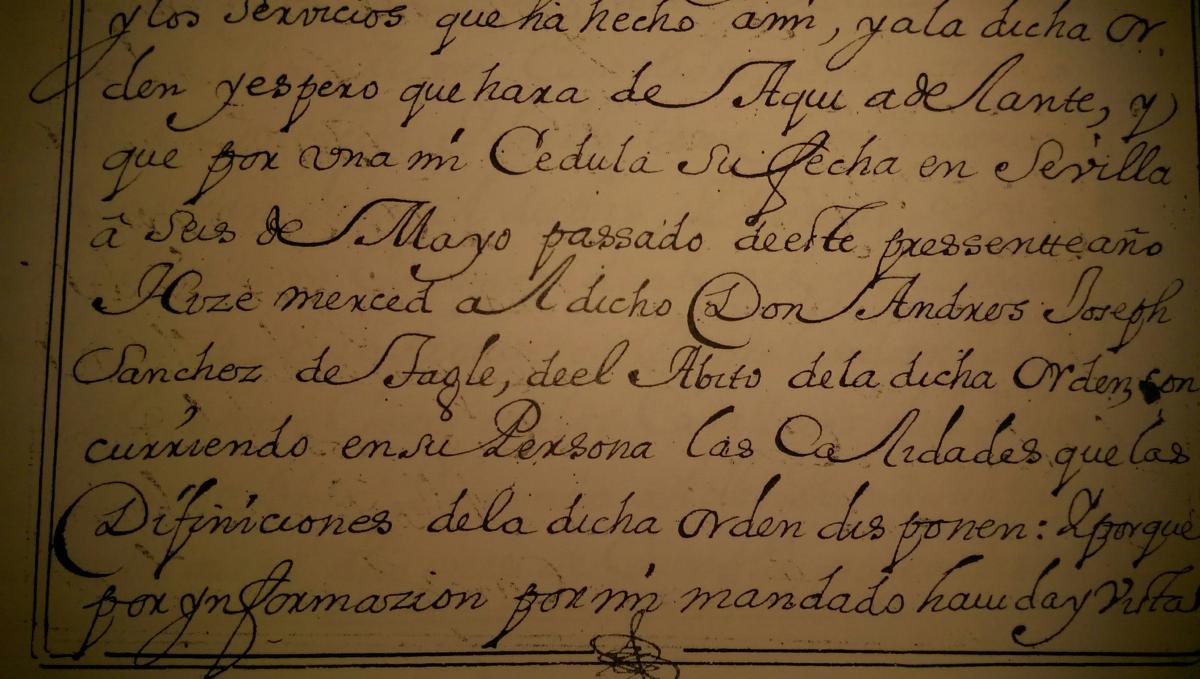 y los Servicios que ha hecho a mi, y a la dicha Or
den y espero que hara de Aqui adelante, y
que por vna mi Cedula su fecha en Sevilla
â Seis de Mayo passado de este pressentte año
Hize merced al dicho Don Andres Joseph
Sanchez de Tagle, de el Abito de la dicha Orden, con
curriendo en su Persona las Calidades que las
Difiniciones de la dicha Orden disponen: Y porque
por ynformazion por mi mandado hauida y Vista